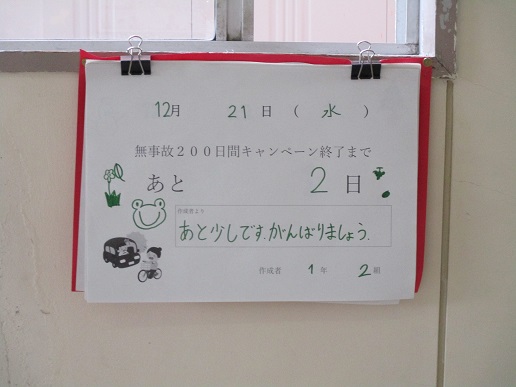 12月 21日（水）
無事故２００日間キャンペーン終了まで
あと 2日
作成者より
あと少しです.がんばりましょう.
作成者 1年 2組